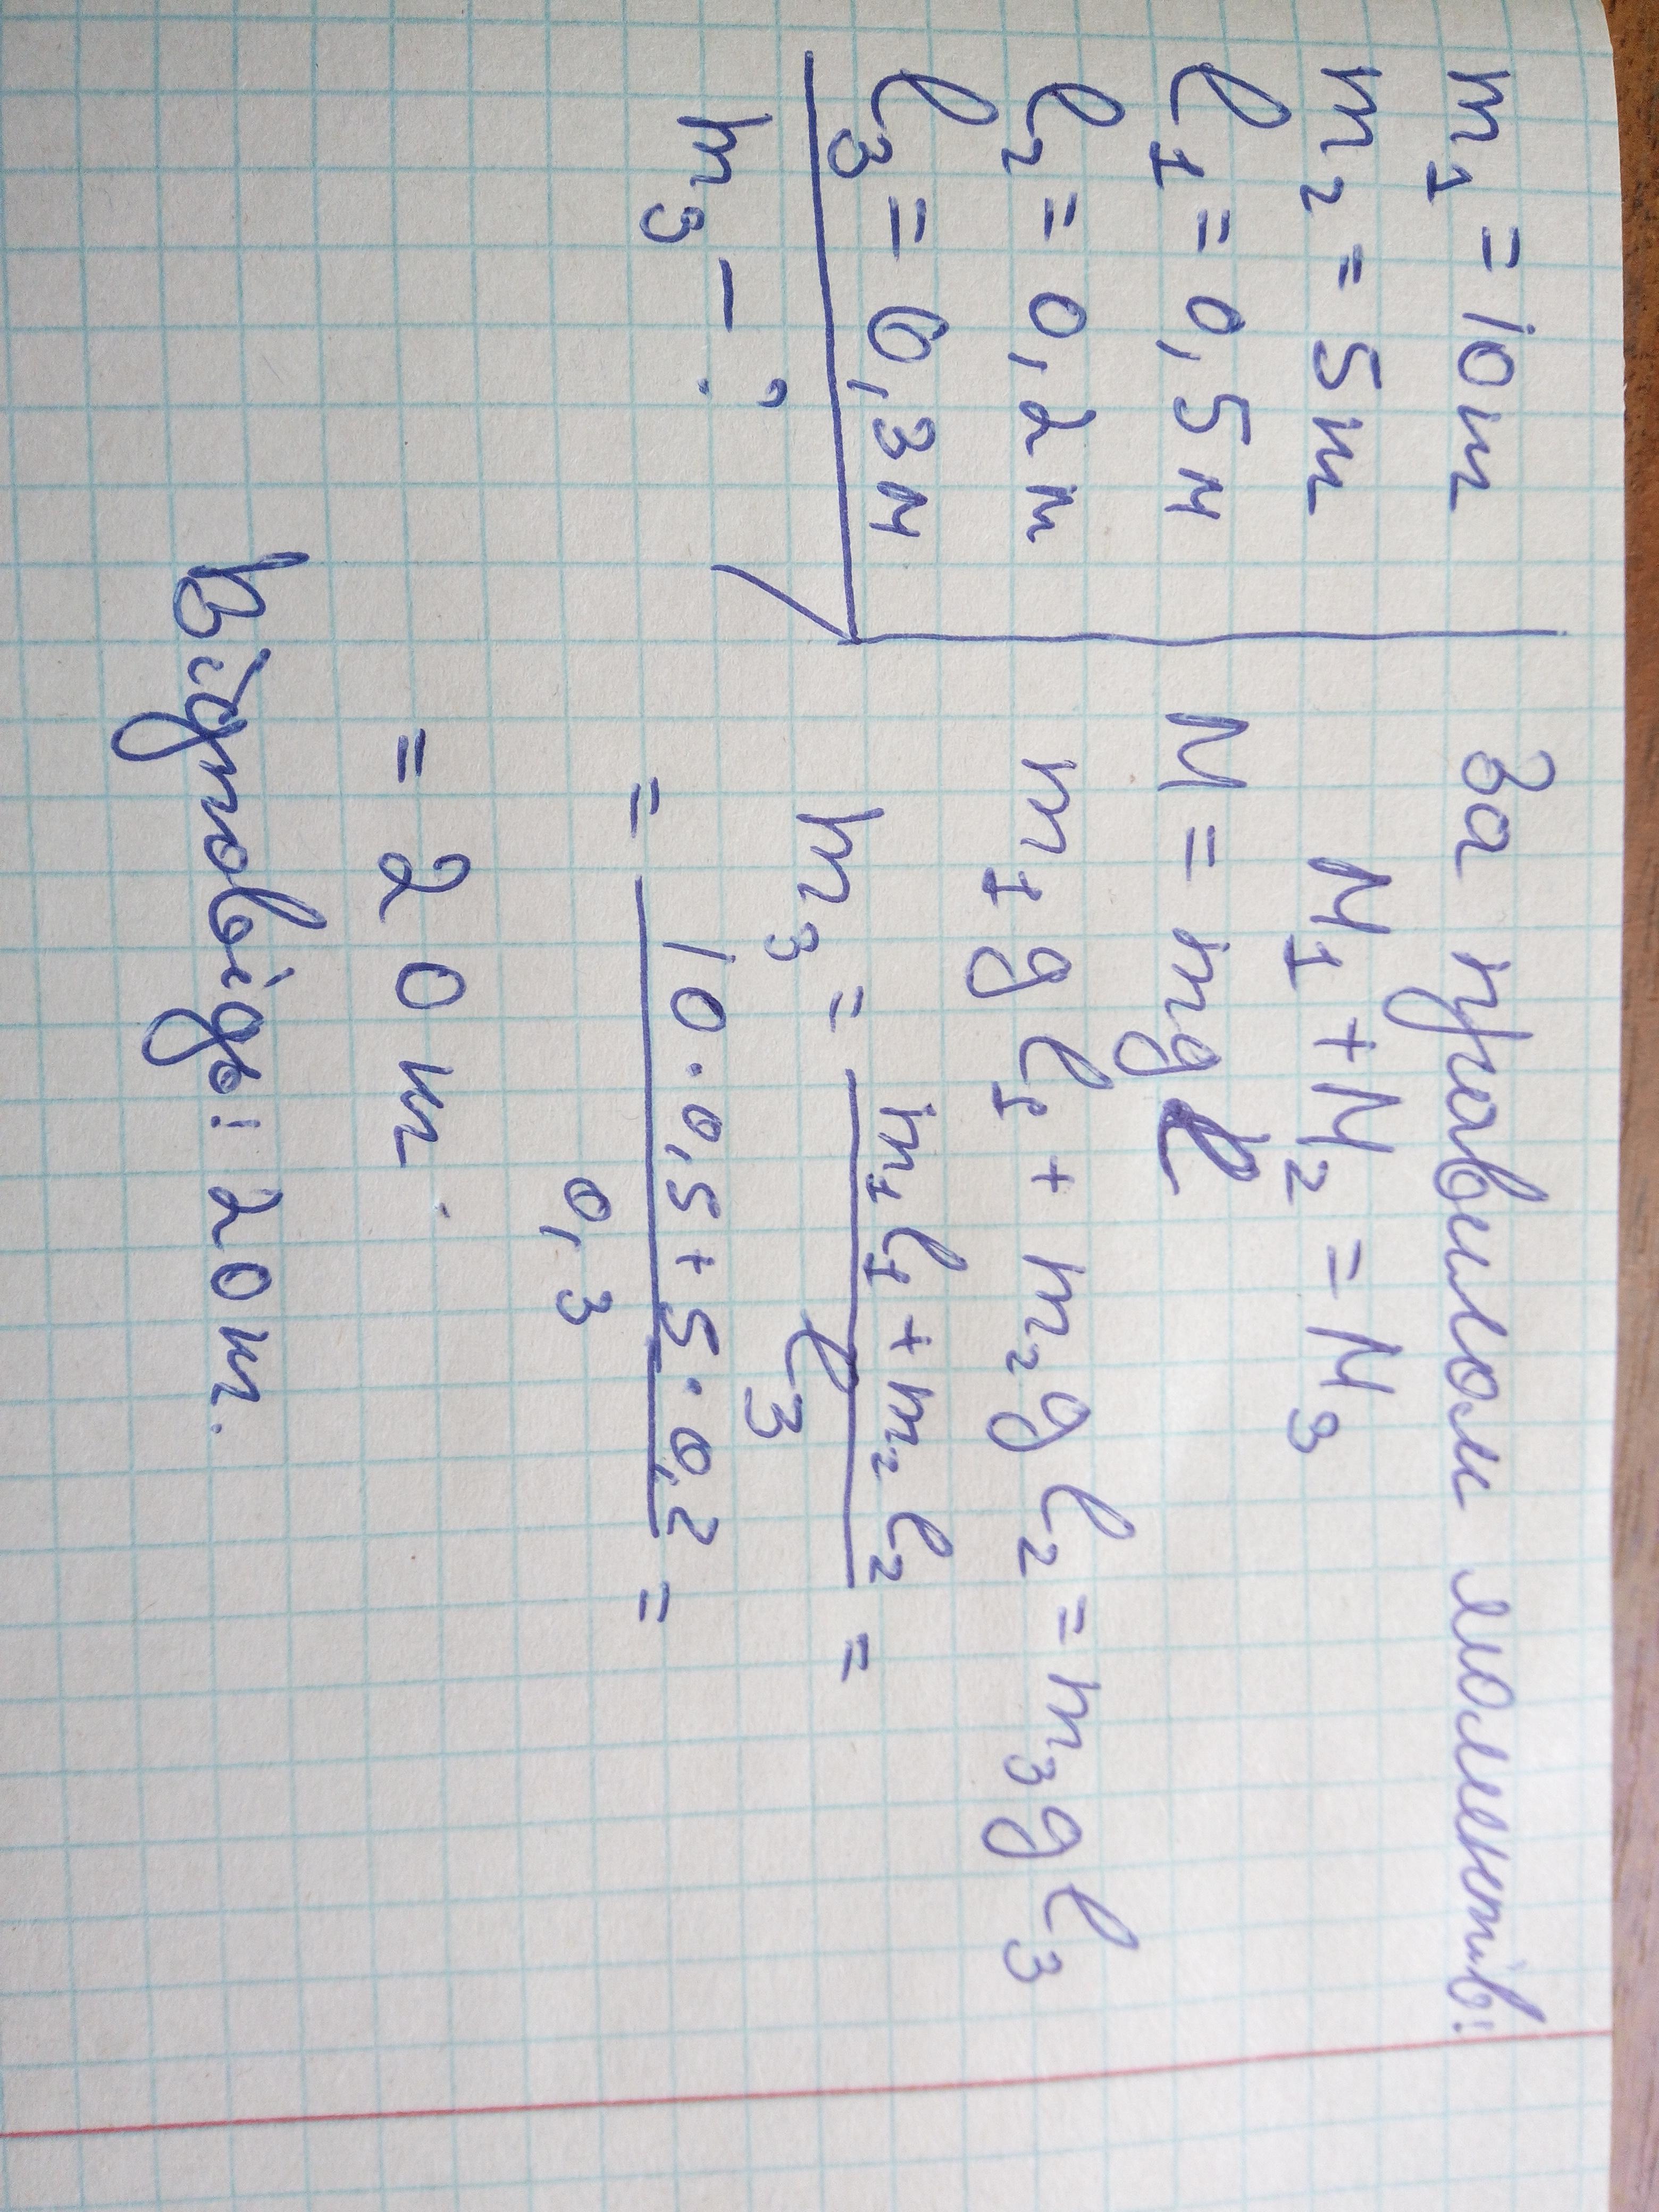 m₁ = 10 т
m₂ = 5 т
l₁ = 0,5 м
l₂ = 0,2 м
l₃ = 0,3 м
m₃ - ?
За правилом моментів:
M₁ + M₂ = M₃
M = mgl
m₁gl₁ + m₂gl₂ = m₃gl₃
m₃ = (m₁l₁ + m₂l₂) / l₃ =
= (10 · 0,5 + 5 · 0,2) / 0,3 =
= 20 т
Відповідь: 20 т.